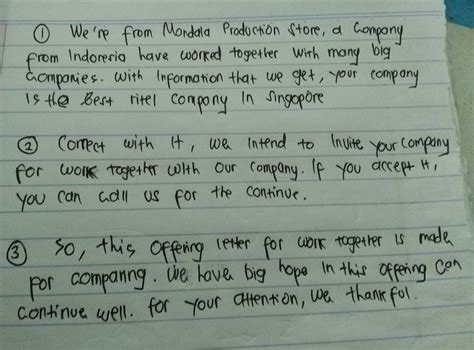 ① We're from Mandala Production Store, a Company
from Indonesia have worked together with many big
Companies. With Information that we get, your company
is the Best ritel company In Singapore
② Correct with It, we Intend to Invite your company
for work together with our company. If you accept It,
you can call us for the continue.
③ So, this offering letter for work together is made
for companing. We have big hope In this offering can
continue well. for your attention, we thankful.